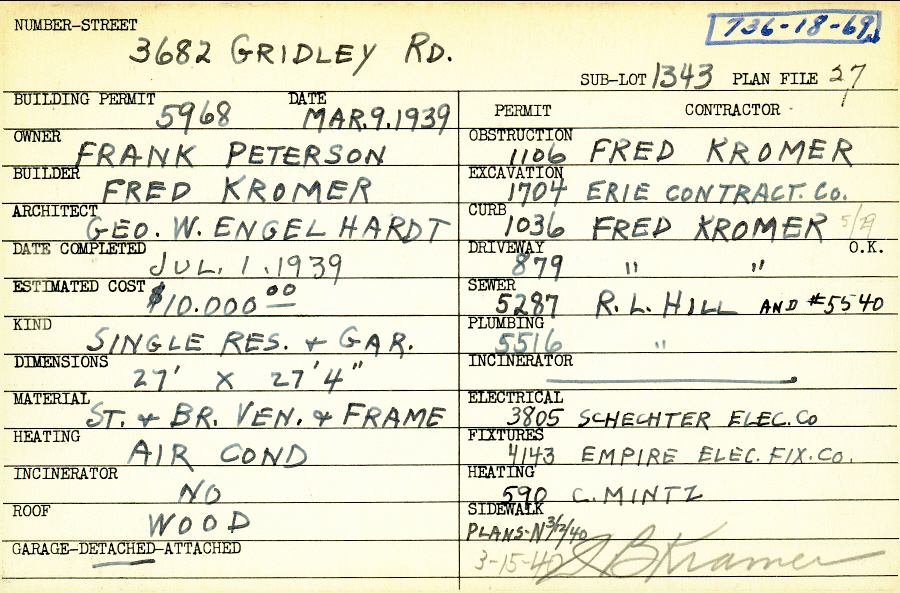 NUMBER-STREET
736-18-69
3682 GRIDLEY RD.
SUB-LOT 1343 PLAN FILE 27
BUILDING PERMIT DATE
5968 MAR.9.1939
OWNER
FRANK PETERSON
BUILDER
FRED KROMER
ARCHITECT
GEO. W. ENGELHARDT
DATE COMPLETED
JUL. 1.1939
ESTIMATED COST
$10.000 00
KIND
SINGLE RES. & GAR.
DIMENSIONS
27' X 27'4"
MATERIAL
ST. & BR. VEN. & FRAME
HEATING
AIR COND
INCINERATOR
NO
ROOF
WOOD
GARAGE-DETACHED-ATTACHED
PERMIT CONTRACTOR
OBSTRUCTION
1106 FRED KROMER
EXCAVATION
1704 ERIE CONTRACT. CO.
CURB
1036 FRED KROMER
DRIVEWAY O.K.
879 " "
SEWER
5287 R.L. HILL AND #5540
PLUMBING
5516 "
INCINERATOR
ELECTRICAL
3805 SCHECHTER ELEC.CO
FIXTURES
4143 EMPIRE ELEC. FIX. CO.
HEATING
590 C. MINTZ
SIDEWALK
PLANS-N 3/12/40
3-15-40 Kramer